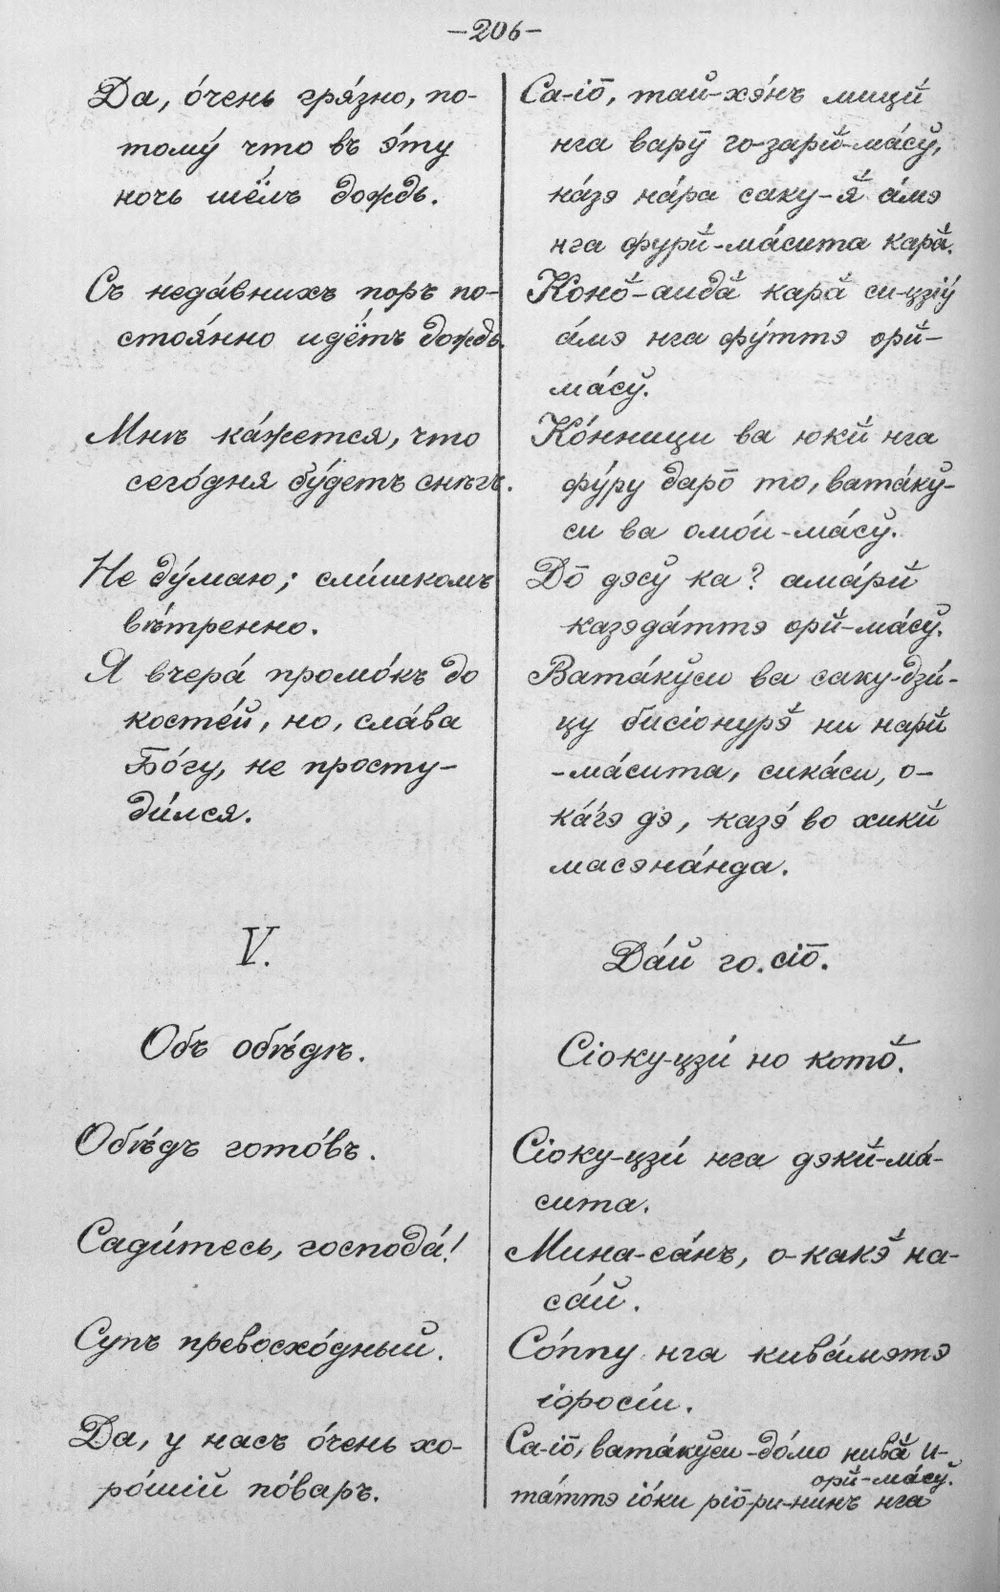 —206—
Да, о́чень гря́зно, по-
тому́ что въ э́ту
ночь шёлъ дождь.
Съ неда́внихъ поръ по-
стоя́нно идётъ дождь.
Мнѣ ка́жется, что
сего́дня бу́детъ снѣгъ.
Не ду́маю; сли́шкомъ
вѣ́тренно.
Я вчера́ промо́къ до
косте́й, но, сла́ва
Бо́гу, не просту-
ди́лся.
V.
Объ обѣ́дѣ.
Обѣ́дъ гото́въ.
Сади́тесь, господа́!
Супъ превосхо́дный.
Да, у насъ о́чень хо-
ро́шій по́варъ.
Са-іо̄, тай-хэ́нъ мицй́
нга варӯ го-зарй́-ма́сў,
на́зэ на́ра саку-я̆́ а́мэ
нга фурй́-ма́сита карӑ́.
Коно̆́-аидӑ́ карӑ́ си-цзіу́
а́мэ нга фу́ттэ орй́-
ма́сў.
Ко́нници ва юкй́ нга
фу́ру даро̄ то, вата́кў-
си ва омо́и-ма́сў.
До̄ дэсў ка? ама́рй
казэда́ттэ орй́-ма́сў.
Вата́кўси ва саку-дзи́-
цу бисіонурэ̆́ ни нарй́
-ма́сита, сика́си, о-
ка́гэ дэ, казэ́ во хикй́
масэна́нда.
Да́й го.сіо̄.
Сіоку-цзи́ но кото̆́.
Сіоку-цзи́ нга дэкй́-ма́-
сита.
Мина-са́нъ, о-какэ̆́ на-
са́й.
Со́ппу нга кива́мэтэ
іоросі́и.
Са-іо̄, вата́кўси-до́мо нивӑ́ и-
та́ттэ іо́ки ріо̄-ри-нинъ нга
орй́-ма́сў.